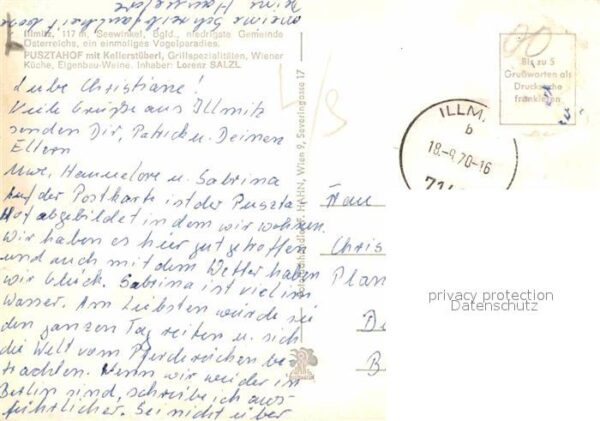 Illmitz, 117 m. Seewinkel, Bgld., niedrigste Gemeinde
Österreichs, ein einmaliges Vogelparadies.
PUSZTAHOF mit Kellerstüberl, Grillspezialitäten, Wiener
Küche, Eigenbau-Weine. Inhaber: Lorenz SALZL.
Liebe Christiane!
Viele Grüße aus Illmitz
senden Dir, Patrick u. Deinen
Eltern
Uwe, Hannelore u. Sabrina
Auf der Postkarte ist der Puszta
Hof abgebildet in dem wir wohnen.
Wir haben es hier gut getroffen
und auch mit dem Wetter haben
wir Glück. Sabrina ist viel im
Wasser. Am Liebsten würde sie
den ganzen Tag reiten u. sich
die Welt vom Pferderücken be-
trachten. Wenn wir wieder in
Berlin sind, schreibe ich aus-
führlicher. Sei nicht über
meine
HAHN, Wien 9, Severingasse 17
Bis zu 5
Grußworten als
Drucksache
frankieren
ILLM
b
18.-9.70-16
71
Chris
Plan
B
privacy protection
Datenschutz